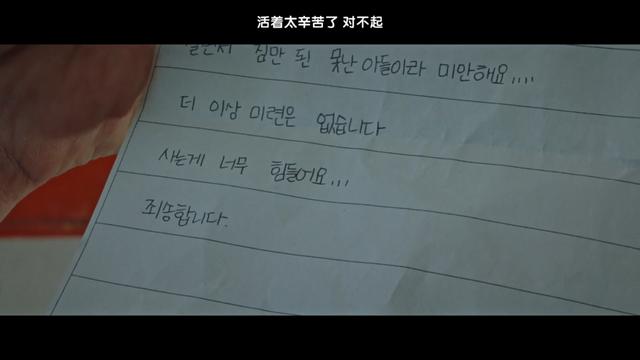 活着太辛苦了 对不起
살면서 짐만 된 못난 아들이라 미안해요....
더 이상 미련은 없습니다
사는게 너무 힘들어요...
죄송합니다.